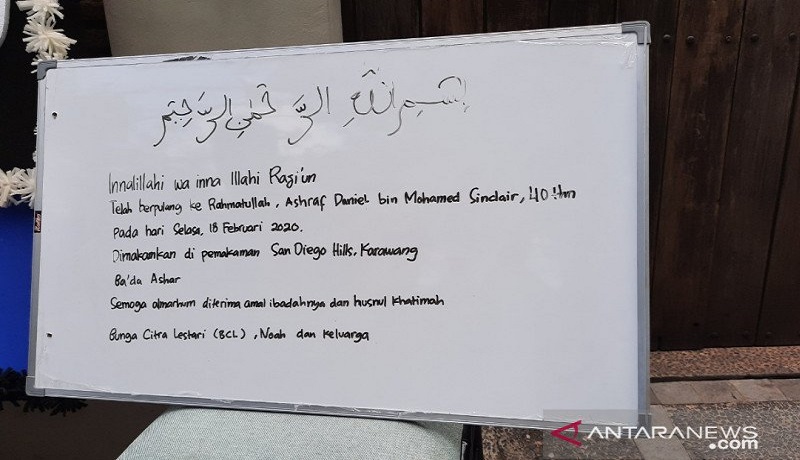 بسم الله الرحمن الرحيم
Innalillahi wa inna Illahi Razi'un
Telah berpulang ke Rahmatullah, Ashraf Daniel bin Mohamed Sinclair, 40 thn
Pada hari Selasa, 18 Februari 2020.
Dimakamkan di pemakaman San Diego Hills, Karawang
Ba'da Ashar
Semoga almarhum diterima amal ibadahnya dan husnul khatimah
Bunga Citra Lestari (BCL), Noah dan Keluarga
ANTARANEWS.com